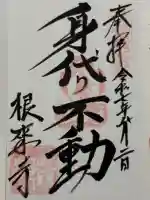 奉拝
令和七年十月二日
身代り不動
根来寺